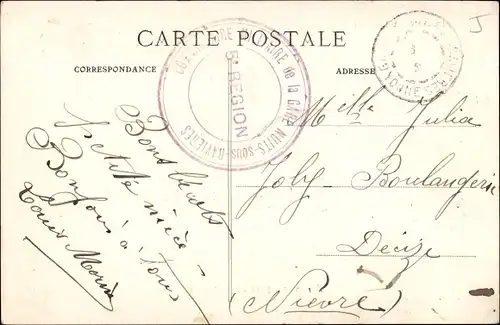 CARTE POSTALE
CORRESPONDANCE
ADRESSE
COMMISSAIRE MILITAIRE de la GARE NUITS-SOUS-RAVIÈRES
5e REGION
YONNE
J
Bons baisers
petite nièce
Bonjour à tous
Louis Morin
Melle Julia
Joly Boulangerie
Decize
(Nièvre)